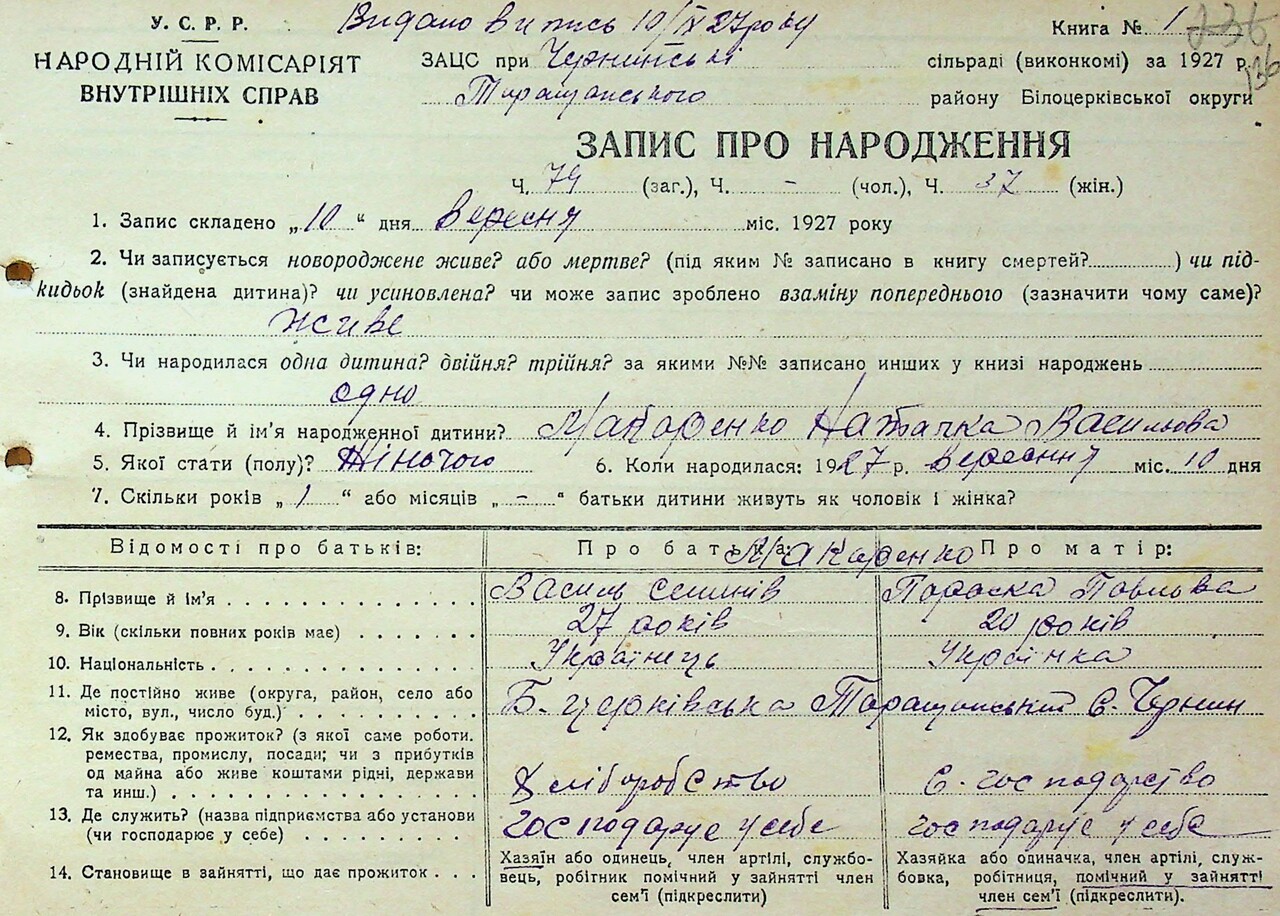 У. С. Р. Р. Видано випись 10/IX 27 року Книга № 1 236
НАРОДНІЙ КОМІСАРІЯТ ЗАЦС при Чернинські сільраді (виконкомі) за 1927 р. 136
ВНУТРІШНІХ СПРАВ Таращанського району Білоцерківської округи
ЗАПИС ПРО НАРОДЖЕННЯ
Ч. 79 (заг.), Ч. - (чол.), Ч. 37 (жін.)
1. Запис складено „10“ дня вересня міс. 1927 року
2. Чи записується новороджене живе? або мертве? (під яким № записано в книгу смертей?..........) чи під-
кидьок (знайдена дитина)? чи усиновлена? чи може запис зроблено взаміну попереднього (зазначити чому саме)?
живе
3. Чи народилася одна дитина? двійня? трійня? за якими №№ записано инших у книзі народжень
одно
4. Прізвище й ім'я народженної дитини? Макаренко Наталка Васильова
5. Якої стати (полу)? Жіночого 6. Коли народилася: 1927 р. вересння міс. 10 дня
7. Скільки років „1“ або місяців „-“ батьки дитини живуть як чоловік і жінка?
Відомості про батьків: Про батька: Макаренко Про матір:
8. Прізвище й ім'я Василь Семинів Параска Павльва
9. Вік (скільки повних років має) 27 років 20 років
10. Національність Українець Українка
11. Де постійно живе (округа, район, село або
місто, вул., число буд.) Б-церківська Таращанський С. Чернин
12. Як здобуває прожиток? (з якої саме роботи.
ремества, промислу, посади; чи з прибутків
од майна або живе коштами рідні, держави
та инш.) Хліборобство С. господарство
13. Де служить? (назва підприємства або установи
(чи господарює у себе) господарує у себе господарує у себе
14. Становище в зайнятті, що дає прожиток
Хазяїн або одинець, член артілі, службо-
вець, робітник помічний у зайнятті член
сем'ї (підкреслити)
Хазяйка або одиначка, член артілі, служ-
бовка, робітниця, помічний у зайнятті
член сем'ї (підкреслити).